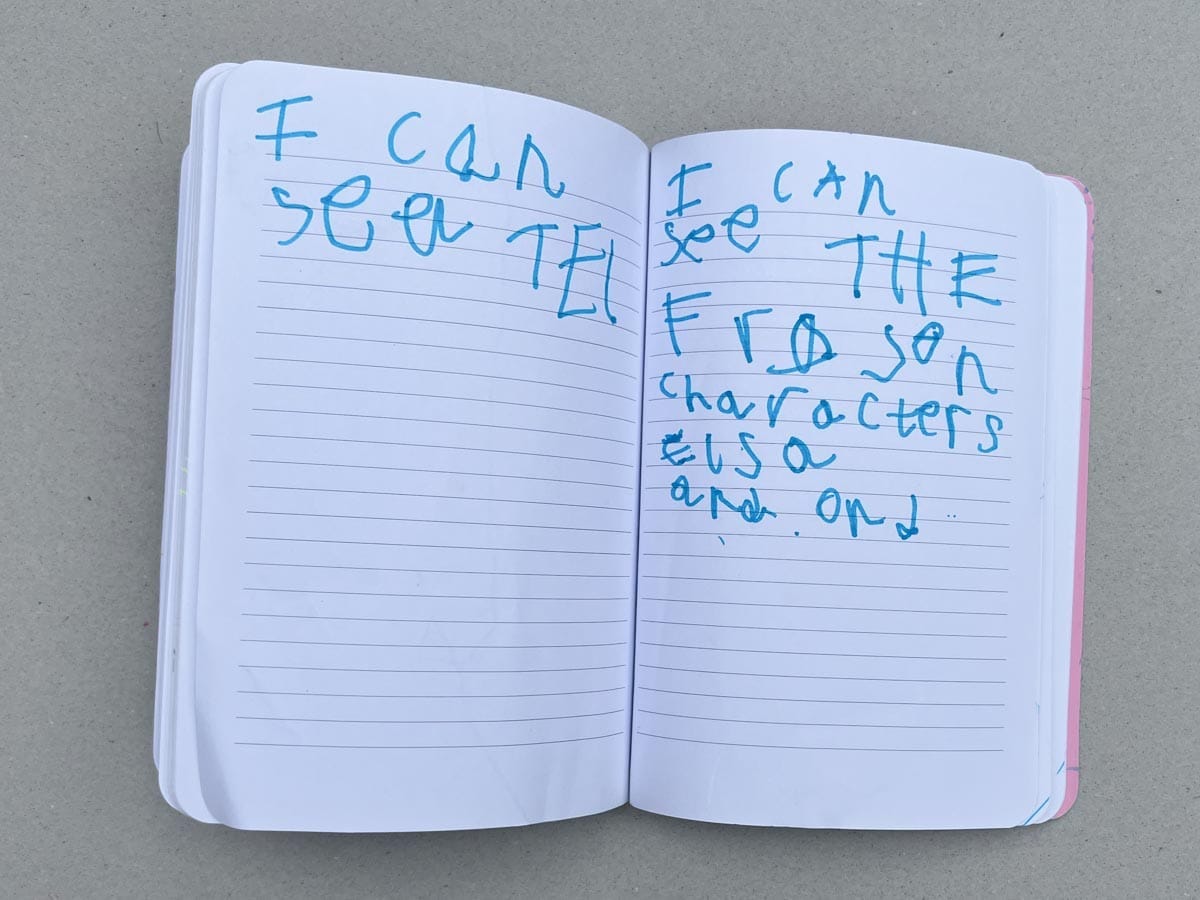 I can
see a TEl
I CAN
see THE
Froson
characters
elsa
and. ond